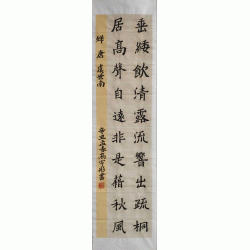 垂緌飲清露流響出疏桐
居高聲自遠非是藉秋風
蟬 唐 虞世南
辛丑